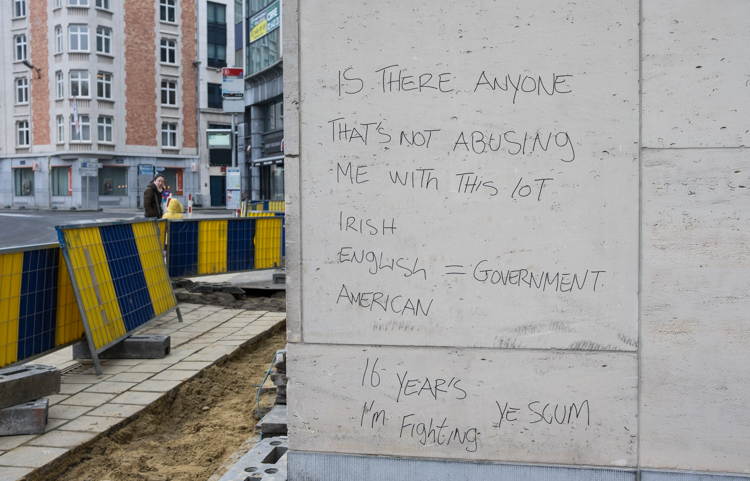 IS THERE ANYONE
THAT'S NOT ABUSING
ME WITH THIS LOT
IRISH
ENGLISH = GOVERNMENT
AMERICAN
16 YEAR'S
I'M FIGHTING YE SCUM